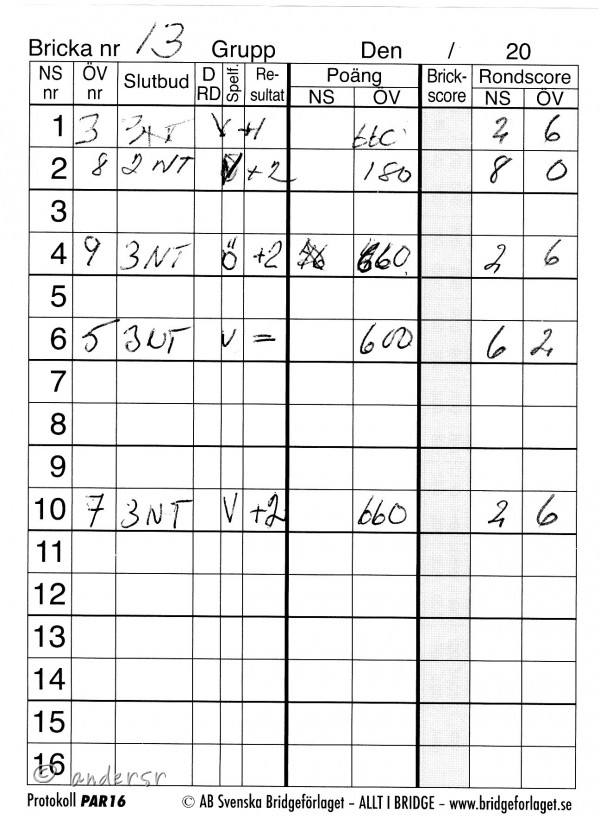 Bricka nr 13 Grupp Den / 20
NS nr ÖV nr Slutbud D RD Spelf. Re-sultat Poäng NS ÖV Brick-score Rondscore NS ÖV
1 3 3NT V +1 2 6
2 8 2 NT V +2 180 8 0
3
4 9 3NT Ö +2 660 2 6
5
6 5 3NT V = 600 6 2
7
8
9
10 7 3NT V +2 660 2 6
11
12
13
14
15
16
© andersr
Protokoll PAR16 © AB Svenska Bridgeförlaget – ALLT I BRIDGE – www.bridgeforlaget.se